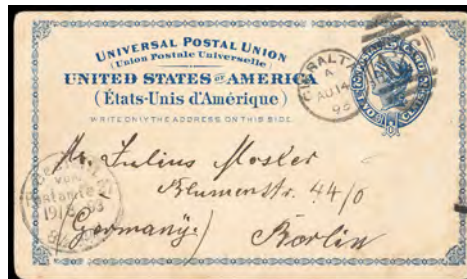 UNIVERSAL POSTAL UNION
(Union Postale Universelle)
UNITED STATES OF AMERICA
(États-Unis d'Amérique)
WRITE ONLY THE ADDRESS ON THIS SIDE
GIBRALTA
A
AU 14
TWO CENTS
Mr. Julius Mosler
Blumenstr. 44/0
(Germany)
Berlin
Postamte